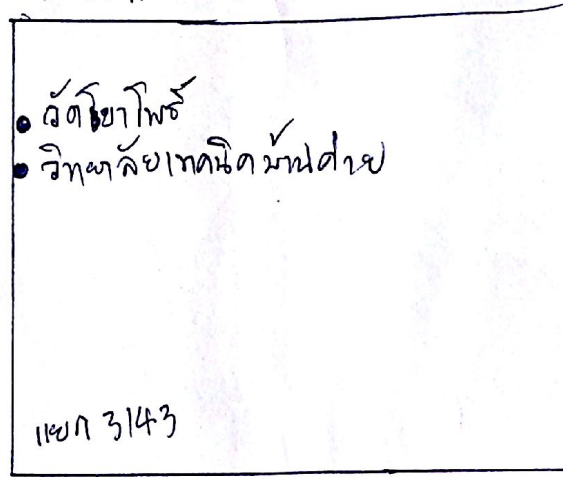 วัดโขาโพธิ์
วิทยาลัยเทคนิคบ้านค่าย
แยก 3143